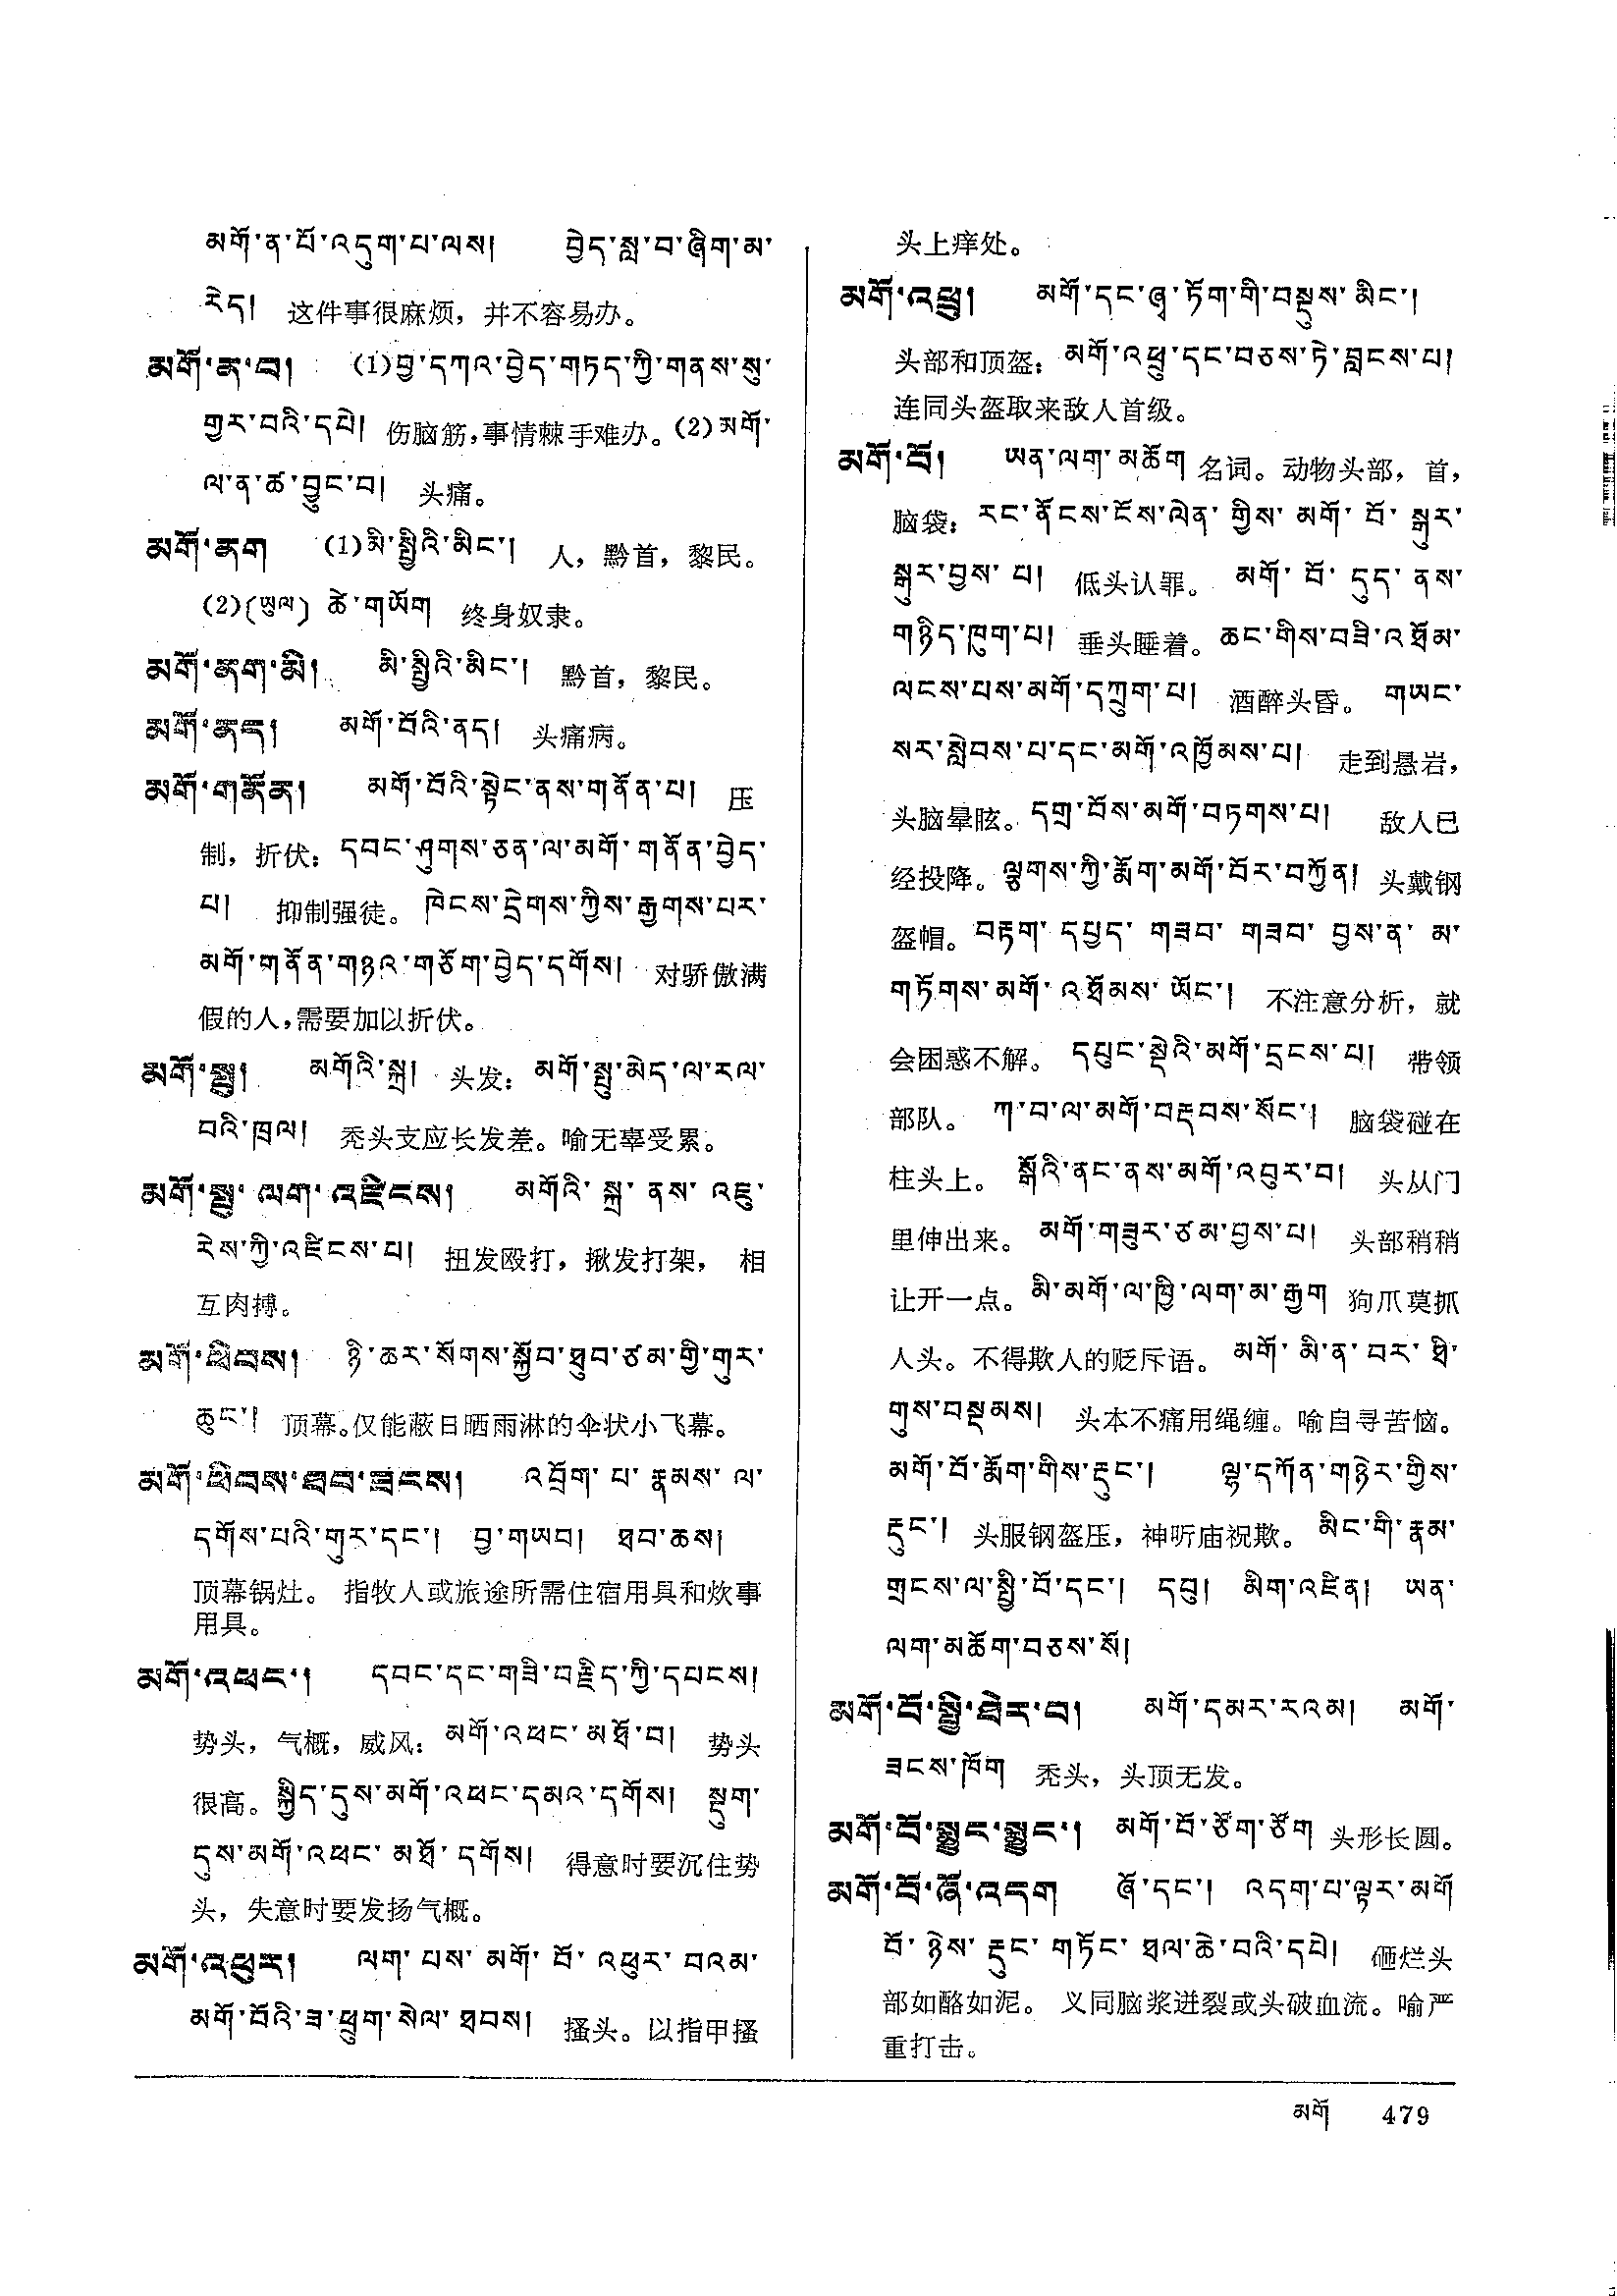 མགོ་ན་པོ་འདུག་པ་ལས། བྱེད་སླ་བ་ཞིག་མ་
རེད། 这件事很麻烦，并不容易办。
མགོ་ན་བ། (1)བྱ་དཀའ་བྱེད་གཏད་ཀྱི་གནས་སུ་
གྱུར་བའི་དཔེ། 伤脑筋，事情棘手难办。(2)མགོ་
ལ་ན་ཚ་བྱུང་བ། 头痛。
མགོ་ནག (1)མི་སྤྱིའི་མིང་། 人，黔首，黎民。
(2)(ཡུལ) ཚེ་གཡོག 终身奴隶。
མགོ་ནག་མི། མི་སྤྱིའི་མིང་། 黔首，黎民。
མགོ་ནད། མགོ་བོའི་ནད། 头痛病。
མགོ་གནོན། མགོ་བོའི་སྟེང་ནས་གནོན་པ། 压
制，折伏：དབང་ཤུགས་ཅན་ལ་མགོ་གནོན་བྱེད་
པ། 抑制强徒。ཁེངས་དྲེགས་ཀྱིས་རྒྱགས་པར་
མགོ་གནོན་གཉའ་གཅོག་བྱེད་དགོས། 对骄傲满
假的人，需要加以折伏。
མགོ་སྤུ། མགོའི་སྐྲ། 头发：མགོ་སྤུ་མེད་ལ་རལ་
བའི་ཁྲལ། 秃头支应长发差。喻无辜受累。
མགོ་སྤུ་ལག་འཛིངས། མགོའི་སྐྲ་ནས་འཇུ་
རེས་ཀྱི་འཛིངས་པ། 扭发殴打，揪发打架， 相
互肉搏。
མགོ་ཕིབས། ཉི་ཆར་སོགས་སྐྱོབ་ཐུབ་ཙམ་གྱི་གུར་
ཆུང་། 顶幕。仅能蔽日晒雨淋的伞状小飞幕。
མགོ་ཕིབས་ཐབ་ཟངས། འབྲོག་པ་རྣམས་ལ་
དགོས་པའི་གུར་དང་། བྱ་གཡབ། ཐབ་ཆས།
顶幕锅灶。 指牧人或旅途所需住宿用具和炊事
用具。
མགོ་འཕང་། དབང་དང་གཟི་བརྗིད་ཀྱི་དཔངས།
势头，气概，威风：མགོ་འཕང་མཐོ་བ། 势头
很高。སྐྱིད་དུས་མགོ་འཕང་དམའ་དགོས། སྡུག་
དུས་མགོ་འཕང་མཐོ་དགོས། 得意时要沉住势
头，失意时要发扬气概。
མགོ་འཕུར། ལག་པས་མགོ་བོ་འཕུར་བའམ་
མགོ་བོའི་ཟ་ཕྲུག་སེལ་ཐབས། 搔头。以指甲搔
头上痒处。
མགོ་འཕྲུ། མགོ་དང་ཞྭ་ཏོག་གི་བསྡུས་མིང་།
头部和顶盔：མགོ་འཕྲུ་དང་བཅས་ཏེ་བླངས་པ།
连同头盔取来敌人首级。
མགོ་བོ། ཡན་ལག་མཆོག 名词。动物头部，首，
脑袋：རང་ནོངས་ངོས་ལེན་གྱིས་མགོ་བོ་སྒུར་
སྒུར་བྱས་པ། 低头认罪。 མགོ་བོ་དུད་ནས་
གཉིད་ཁུག་པ། 垂头睡着。ཆང་གིས་བཟི་འཐོམ་
ལངས་པས་མགོ་དཀྲུག་པ། 酒醉头昏。 གཡང་
སར་སླེབས་པ་དང་མགོ་འཁྱོམས་པ། 走到悬岩，
头脑晕眩。དགྲ་བོས་མགོ་བཏགས་པ། 敌人已
经投降。ལྕགས་ཀྱི་རྨོག་མགོ་བོར་བཀྱོན། 头戴钢
盔帽。བརྟག་དཔྱད་གཟབ་གཟབ་བྱས་ན་མ་
གཏོགས་མགོ་འཐོམས་ཡོང་། 不注意分析，就
会困惑不解。 དཔུང་སྡེའི་མགོ་དྲངས་པ། 带领
部队。 ཀ་བ་ལ་མགོ་བརྡབས་སོང་། 脑袋碰在
柱头上。 སྒོའི་ནང་ནས་མགོ་འབུར་བ། 头从门
里伸出来。 མགོ་གཟུར་ཙམ་བྱས་པ། 头部稍稍
让开一点。མི་མགོ་ལ་ཁྱི་ལག་མ་རྒྱག 狗爪莫抓
人头。不得欺人的贬斥语。 མགོ་མི་ན་བར་ཐི་
གུས་བསྡམས། 头本不痛用绳缠。喻自寻苦恼。
མགོ་བོ་རྨོག་གིས་རྡུང་། ལྷ་དཀོན་གཉེར་གྱིས་
རྡུང་། 头服钢盔压，神听庙祝欺。 མིང་གི་རྣམ་
གྲངས་ལ་སྤྱི་བོ་དང་། དབུ། མིག་འཛིན། ཡན་
ལག་མཆོག་བཅས་སོ།
མགོ་བོ་སྤྱི་ཐེར་བ། མགོ་དམར་རའམ། མགོ་
ཟངས་ཁོག 秃头，头顶无发。
མགོ་བོ་སྨྱུང་སྨྱུང་། མགོ་བོ་ཙོག་ཙོག 头形长圆。
མགོ་བོ་ཞོ་འདག ཞོ་དང་། འདག་པ་ལྟར་མགོ
བོ་ཉེས་རྡུང་གཏོང་ཐལ་ཆེ་བའི་དཔེ། 砸烂头
部如酪如泥。 义同脑浆迸裂或头破血流。喻严
重打击。
མགོ 479